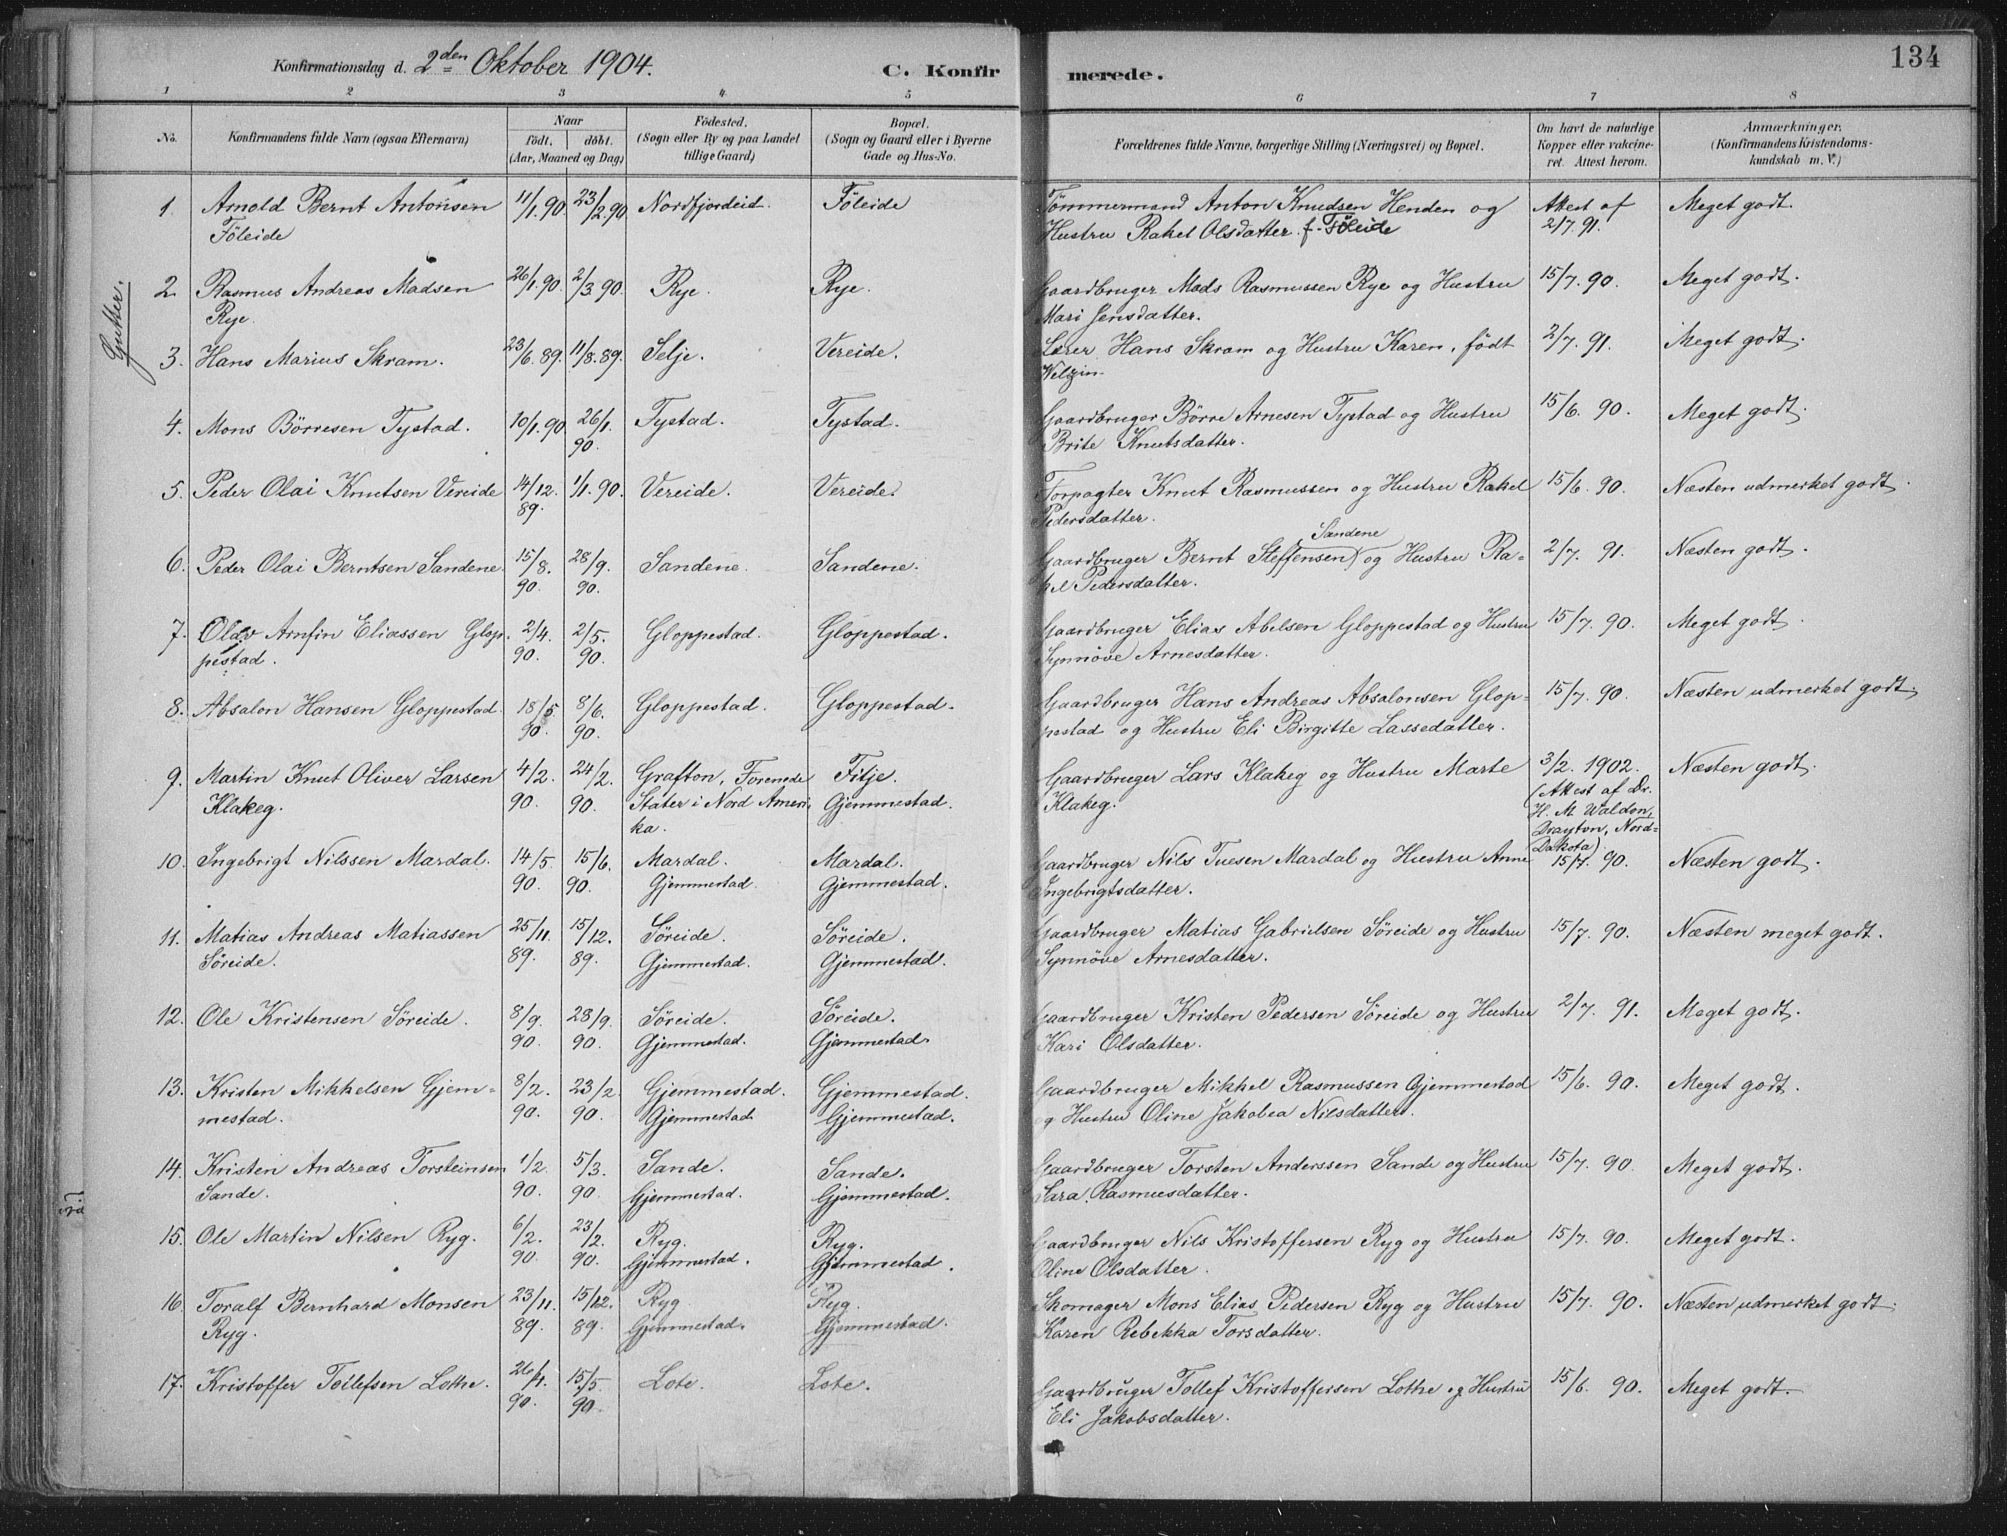 Konfirmationsdag d. 2den Oktober 1904.
C. Konfirmerede.
134
1 2 3 4 5 6 7 8
No. Konfirmandens fulde Navn (ogsaa Efternavn) Naar født. døbt. (Aar, Maaned og Dag) Fødested. (Sogn eller By og paa Landet tillige Gaard) Bopæl. (Sogn og Gaard eller i Byerne Gade og Hus-No. Forældrenes fulde Navne, borgerlige Stilling (Næringsvei) og Bopæl. Om havt de naturlige Kopper eller vakcineret. Attest herom. Anmærkninger. (Konfirmandens Kristendomskundskab m. V.)
Gutter.
1. Arnold Bernt Antonsen Föleide 11/1.90 23/2.90 Nordfjordeid. Föleide Tömmermand Anton Knudsen Henden og Hustru Rakel Olsdatter f. Föleide Attest af 2/7.91. Meget godt.
2. Rasmus Andreas Madsen Rye. 26/1.90. 2/3.90. Rye. Rye. Gaardbruger Mads Rasmussen Rye og Hustru Mari Jensdatter. 15/7.90. Meget godt.
3. Hans Marius Skram. 23/6.89. 11/8.89. Selje. Vereide. Lærer Hans Skram og Hustru Karen, født Velzin. 2/7.91. Meget godt.
4. Mons Börresen Tystad. 10/1.90 26/1.90. Tystad. Tystad. Gaardbruger Börre Arnesen Tystad og Hustru Brite Knutsdatter. 15/6.90. Meget godt.
5. Peder Olai Knutsen Vereide 14/12.89. 1/1.90. Vereide. Vereide. Forpagter Knut Rasmussen og Hustru Rakel Pedersdatter. 15/6.90. Næsten udmerket godt.
6. Peder Olai Berntsen Sandene. 15/8.90. 28/9.90. Sandene. Sandene. Gaardbruger Bernt Steffensen Sandene og Hustru Rakel Pedersdatter. 2/7.91. Næsten godt.
7. Olav Arnfin Eliassen Gloppestad. 2/4.90. 2/5.90. Gloppestad. Gloppestad. Gaardbruger Elias Abelsen Gloppestad og Hustru Synnöve Arnesdatter. 15/7.90. Meget godt.
8. Absalon Hansen Gloppestad. 18/5.90. 8/6.90. Gloppestad. Gloppestad. Gaardbruger Hans Andreas Absalonsen Gloppestad og Hustru Eli Birgitte Lassedatter. 15/7.90. Næsten udmerket godt.
9. Martin Knut Oliver Larsen Klakeg. 4/2.90. 24/2.90. Grafton, Forenede Stater i Nord Amerika. Fitje. Gjemmestad. Gaardbruger Lars Klakeg og Hustru Marte Klakeg. 3/2.1902. (Attest af Dr. H. M. Waldon, Drayton, Nord-Dakota) Næsten godt.
10. Ingebrigt Nilssen Mardal. 14/5.90. 15/6.90. Mardal. Gjemmestad. Mardal. Gjemmestad. Gaardbruger Nils Tuesen Mardal og Hustru Anne Ingebrigtsdatter. 15/7.90. Næsten godt.
11. Matias Andreas Matiassen Söreide. 25/11.89. 15/12.89. Söreide. Gjemmestad. Söreide. Gjemmestad. Gaardbruger Matias Gabrielsen Söreide og Hustru Synnöve Arnesdatter. 15/7.90. Næsten meget godt.
12. Ole Kristensen Söreide. 8/9.90. 28/9.90. Söreide. Gjemmestad. Söreide. Gjemmestad. Gaardbruger Kristen Pedersen Söreide og Hustru Kari Olsdatter. 2/7.91. Meget godt.
13. Kristen Mikkelsen Gjemmestad. 8/2.90. 23/2.90. Gjemmestad. Gjemmestad Gjemmestad. Gjemmestad. Gaardbruger Mikkel Rasmussen Gjemmestad og Hustru Oline Jakobea Nilsdatter. 15/6.90. Meget godt.
14. Kristen Andreas Torsteinsen Sande. 1/2.90. 5/3.90. Sande. Gjemmestad. Sande. Gjemmestad. Gaardbruger Torsten Anderssen Sande og Hustru Sara Rasmusdatter. 15/7.90. Meget godt.
15. Ole Martin Nilsen Ryg. 6/2.90. 23/2.90. Ryg. Gjemmestad. Ryg. Gjemmestad. Gaardbruger Nils Kristoffersen Ryg og Hustru Oline Olsdatter. 15/7.90. Meget godt.
16. Toralf Bernhard Monsen Ryg. 23/11.89. 15/12.89. Ryg. Gjemmestad. Ryg. Gjemmestad. Skomager Mons Elias Pedersen Ryg og Hustru Karen Rebekka Torsdatter. 15/7.90. Næsten udmerket godt.
17. Kristoffer Tollefsen Lothe. 26/1.90. 15/5.90. Lote. Lote. Gaardbruger Tollef Kristoffersen Lothe og Hustru Eli Jakobsdatter. 15/6.90. Meget godt.